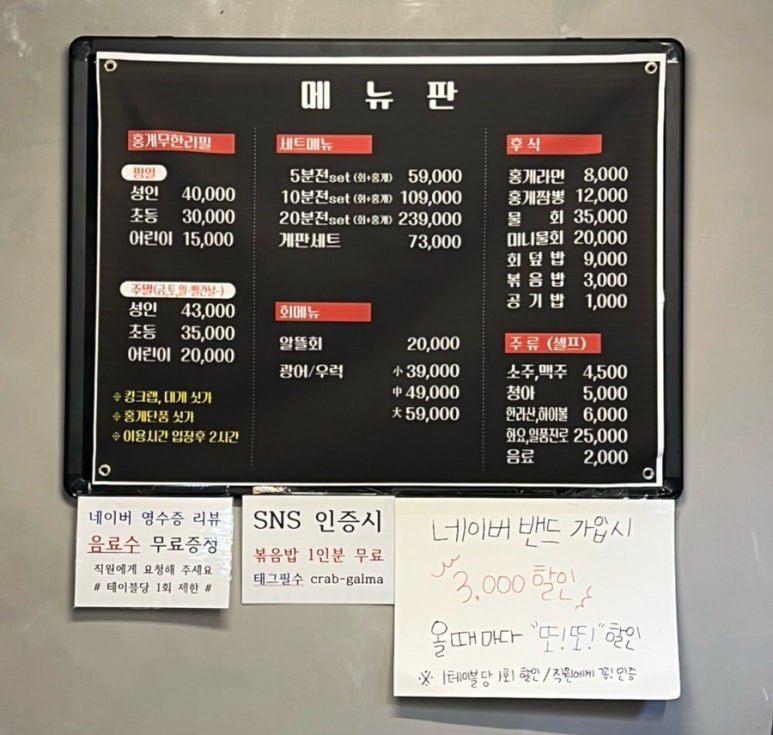 메뉴판
홍게무한리필
평일
성인 40,000
초등 30,000
어린이 15,000
주말(금,토,일-빨간날-)
성인 43,000
초등 35,000
어린이 20,000
※ 킹크랩, 대게 싯가
※ 홍게단품 싯가
※ 이용시간 입장후 2시간
세트메뉴
5분전set (회+홍게) 59,000
10분전set (회+홍게) 109,000
20분전set (회+홍게) 239,000
게판세트 73,000
회메뉴
알뜰회 20,000
광어/우럭 小 39,000
中 49,000
大 59,000
후식
홍게라면 8,000
홍게짬뽕 12,000
물회 35,000
미니물회 20,000
회덮밥 9,000
볶음밥 3,000
공기밥 1,000
주류 (셀프)
소주,맥주 4,500
청하 5,000
한라산,하이볼 6,000
화요,일품진로 25,000
음료 2,000
네이버 영수증 리뷰
음료수 무료증정
직원에게 요청해 주세요
# 테이블당 1회 제한 #
SNS 인증시
볶음밥 1인분 무료
태그필수 crab-galma
네이버 밴드 가입시
3,000 할인
올때마다 "또!또!" 할인
※ 1테이블당 1회 할인 / 직원에게 꼭! 인증